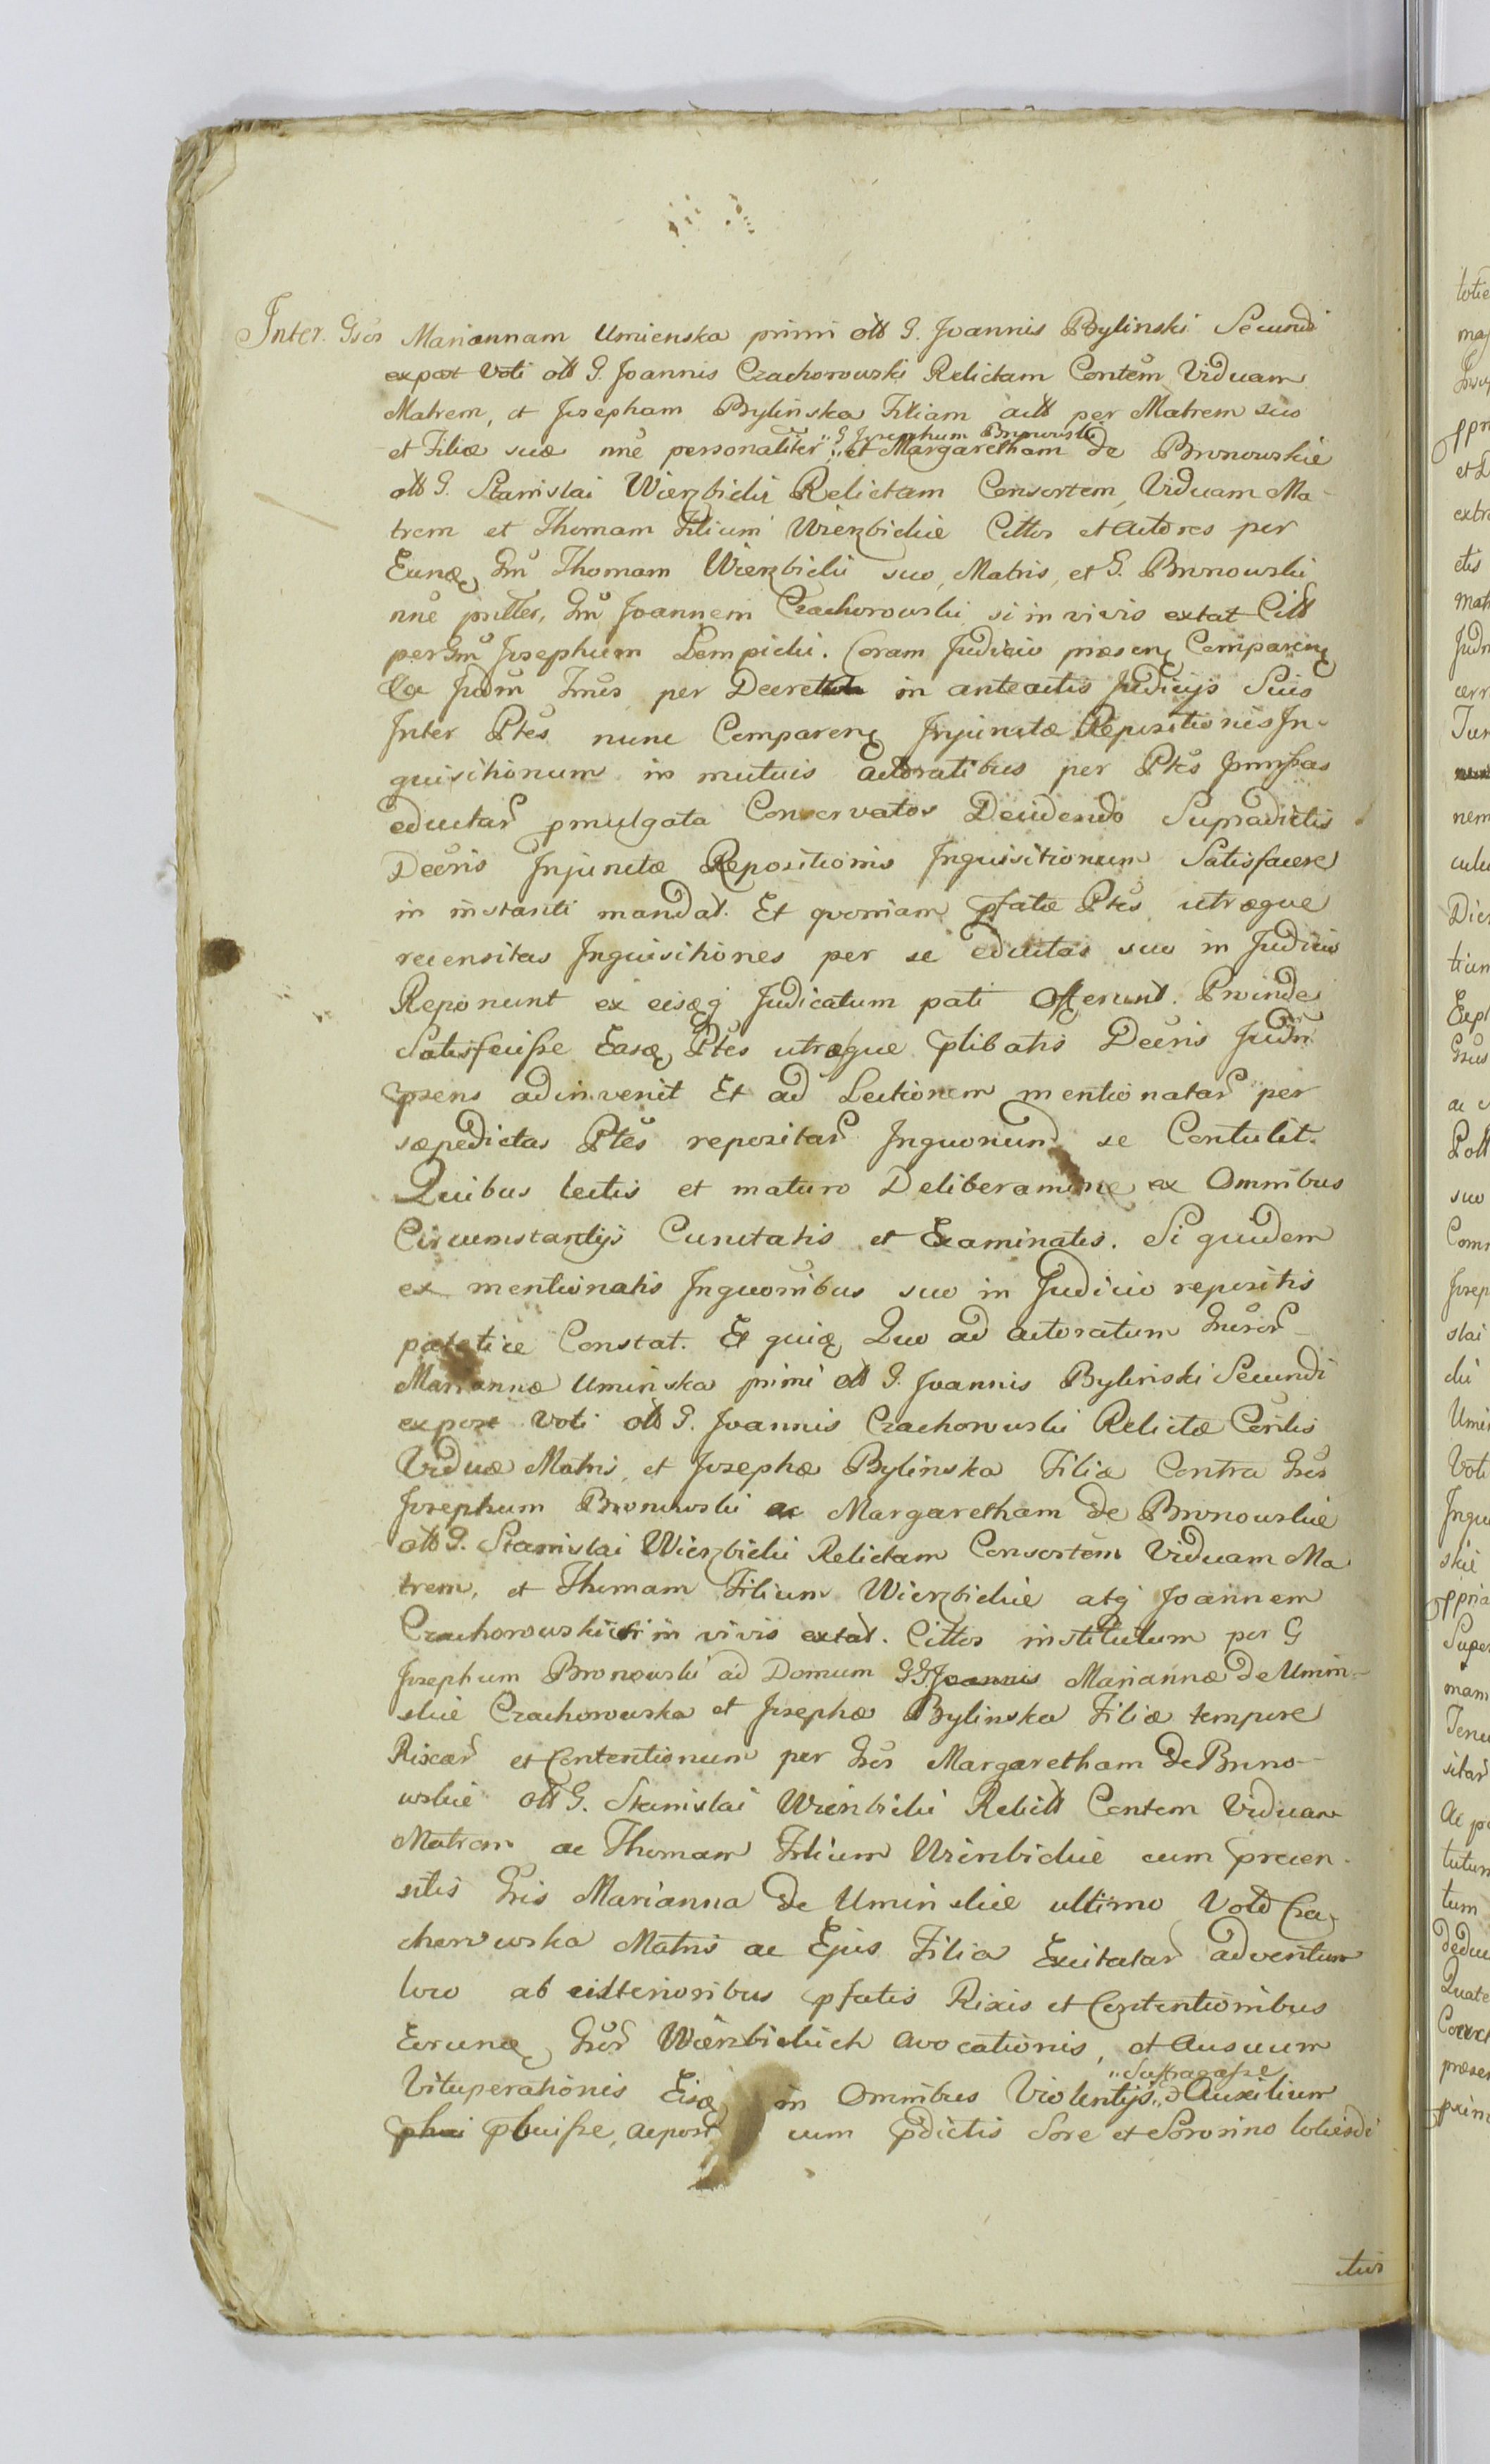 Inter Gsos Mariannam Umienska primi oll G. Joannis Bylinski Secundi
expost Voti oll G. Joannis Czachorowski Relictam Contem Viduam
Matrem, et Josepham Bylinska Filiam act per Matrem suo
et Filiæ suæ nne personaliter G Josephum Bronowski et Margaretham de Bronowskie
oll G. Stanislai Wierzbicki Relictam Consortem, Viduam Ma-
trem et Thomam Filium Wierzbickie Cittos et Actores per
Eunq Gm Thomam Wierzbicki suo, Matris, et G. Bronowski
nne pnlter, Gm Joannem Czachorowski si in vivis extat Citt
per Gm Josephum Lempicki. Coram Judicio præsenq Comparenq
Judm Inus per Decretum in anteactis Judicijs Suis
Inter Ptes nunc Comparenq Injunctæ Repositionis In-
quisitionum in mutuis actoratibus per Ptes Immissas
eductar pmulgata Conservatos Decidendo Supradictis
Decris Injunctæ Repositionis Inquisitionum Satisfacere
in instanti mandat. Et quoniam pfatæ Ptes utræque
recensitas Inquisitiones per se eductas suo in Judicio
Reponunt ex eisq Judicatum pati Offerunt. Proinde
Satisfecisse Easq Ptes utræque plibatis Decris Judm
psens adinvenit Et ad Lectionem mentionatar per
sæpedictas Ptes repositar Inquonum se Contulit.
Quibus lectis et maturo Deliberamine ex Omnibus
Circumstantijs Cunctatis et Examinatis. Si quidem
ex mentionatis Inquonibus suo in Judicio repositis
patetice Constat. Et quia Quo ad actoratum Gnsor
Mariannæ Uminska primi oll G. Joannis Bylinski Secundi
expost Voti oll G. Joannis Czachorowski Relictæ Contis
Viduæ Matris, et Josephæ Bylinska Filiæ Contra Gsos
Josephum Bronowski ac Margaretham de Bronowskie
oll G. Stanislai Wierzbicki Relictam Consortem Viduam Ma
trem, et Thomam Filium Wierzbickie atq Joannem
Czachorowski si in vivis extat. Cittos institutum per G
Josephum Bronowski ad Domum GG Joannis Mariannæ de Umin-
skie Czachorowska et Josephæ Bylinska Filiæ tempore
Rixar et Contentionum per Gsos Margaretham de Brono-
wskie oll G. Stanislai Wierzbicki Relictt Contem Viduam
Matrem ac Thomam Filium Wierzbickie cum precen-
sitis Gsis Marianna de Uminskie ultimo Voto Cza,
chorowska Matris ac Ejus Filia Excitatar adventum
loco ab citterioribus pfatis Rixis et Contentionibus
Eorunq Gsor Wierzbickich avocationis, et ausuum
Vituperationis Eisq in Omnibus Violentijs Suffragasse Auxilium
pbuisse, ac post cum pdictis Sore et Sororino toties di
ctus